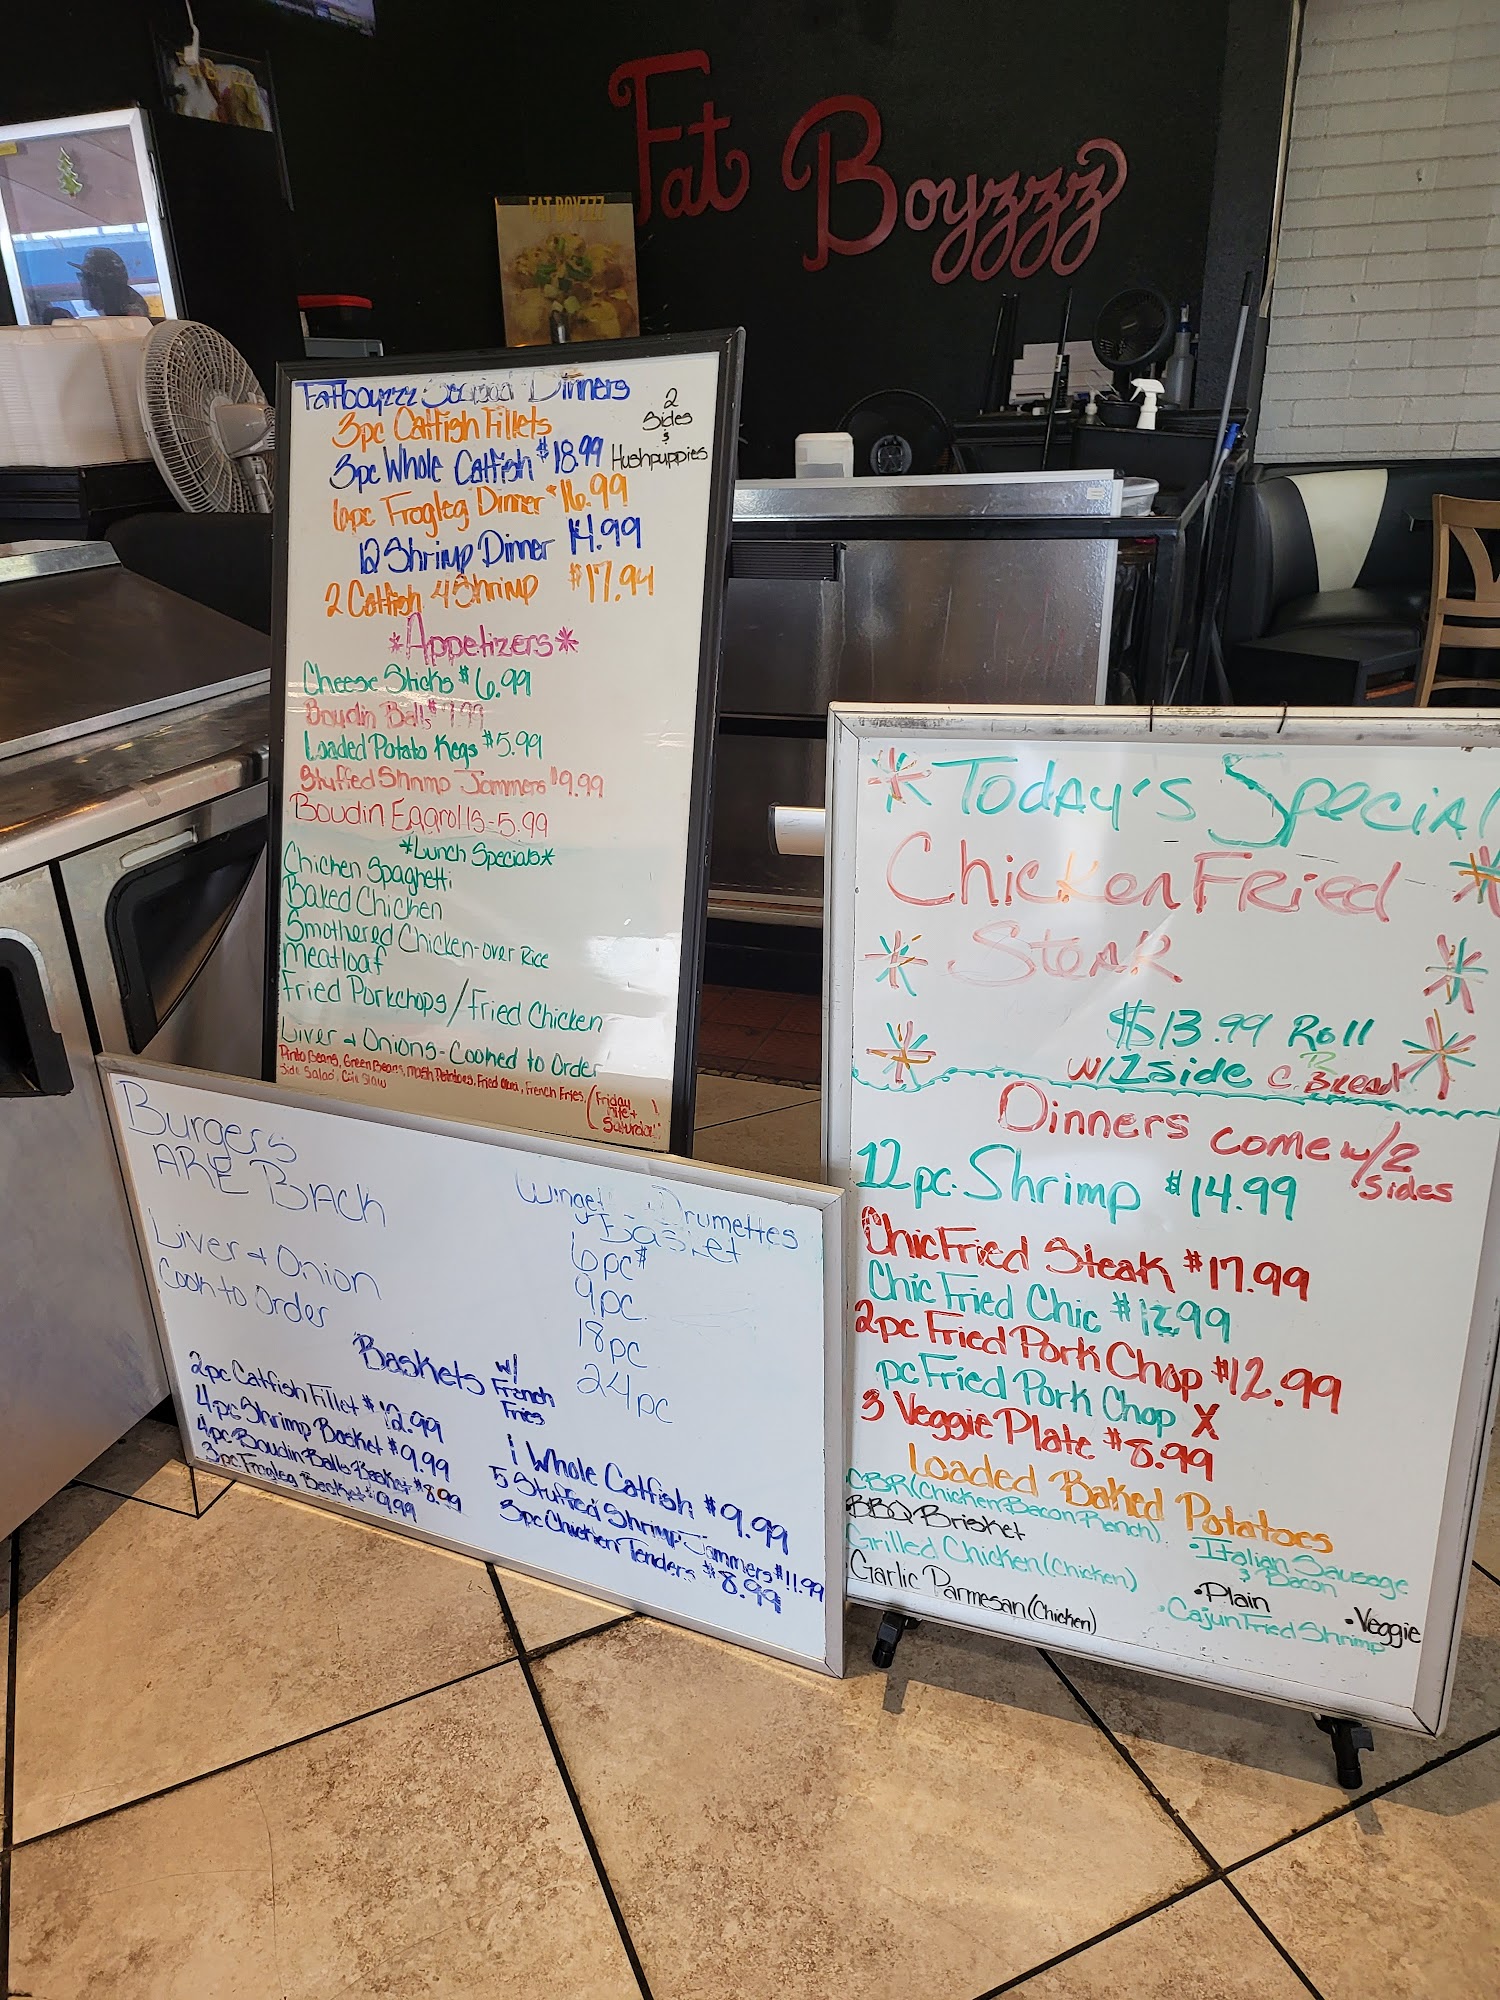 Fat Boyzzz
FAT BOYZZZ
Fatboyzzz Seafood Dinners
2
Sides
&
Hushpuppies
3pc Catfish Fillets
3pc Whole Catfish $18.99
6pc Frogleg Dinner $16.99
12 Shrimp Dinner 14.99
2 Catfish 4 Shrimp $17.94
*Appetizers*
Cheese Sticks $6.99
Boudin Balls $9.99
Loaded Potato Kegs $5.99
Stuffed Shrimp Jammers $9.99
Boudin Eggrolls-5.99
*Lunch Specials*
Chicken Spaghetti
Baked Chicken
Smothered Chicken-over Rice
Meatloaf
Fried Porkchops/Fried Chicken
Liver & Onions-Cooked to Order
Pinto Beans, Green Beans, Mash Potatoes, Fried Okra, French Fries,
Side Salad, Cole Slaw
(Friday
Nite &
Saturday!)
Burgers
ARE BACK
Liver & Onion
Cook to Order
Drumettes
Basket
6pc $
9pc
18pc
24pc
Baskets w/
French
Fries
2pc Catfish Fillet $12.99
4pc Shrimp Basket $9.99
4pc Boudin Balls Basket $8.99
3pc Frogleg Basket $9.99
1 Whole Catfish $9.99
5 Stuffed Shrimp Jammers $11.99
3pc Chicken Tenders $8.99
*Today's Special
Chicken Fried
Steak
$13.99 Roll
w/1 Side C. Bread
Dinners come w/2
Sides
12pc. Shrimp $14.99
Chic Fried Steak $17.99
Chic Fried Chic $12.99
2pc Fried Pork Chop $12.99
pc Fried Pork Chop X
3 Veggie Plate $8.99
Loaded Baked Potatoes
CBR (Chicken Bacon Ranch)
BBQ Brisket
Grilled Chicken (Chicken)
Garlic Parmesan (Chicken)
•Italian Sausage
& Bacon
•Plain
•Cajun Fried Shrimp
•Veggie